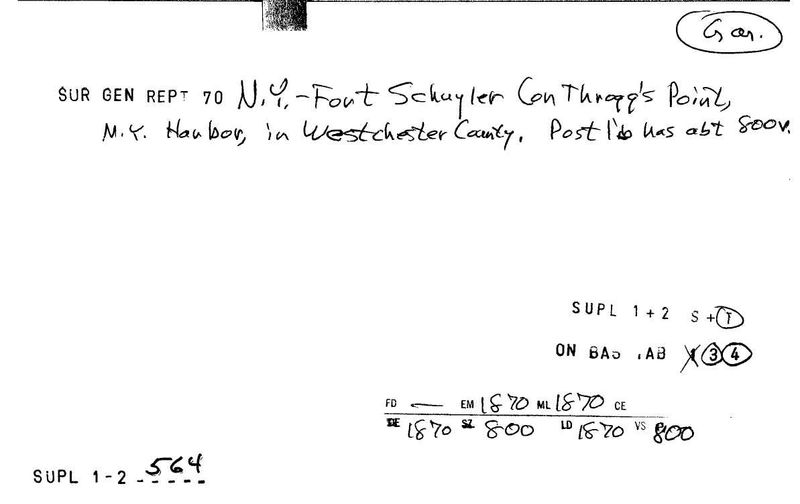 Gar.
SUR GEN REPT 70 N.Y.-Fort Schuyler (on Throgg's Point,
N.Y. Harbor, in Westchester County. Post l'b has abt 800v.
SUPL 1+2 S+1
ON BAS TAB 1 3 4
FD — EM 1870 ML 1870 CE
DE 1870 SZ 800 LD 1870 VS 800
SUPL 1-2 564